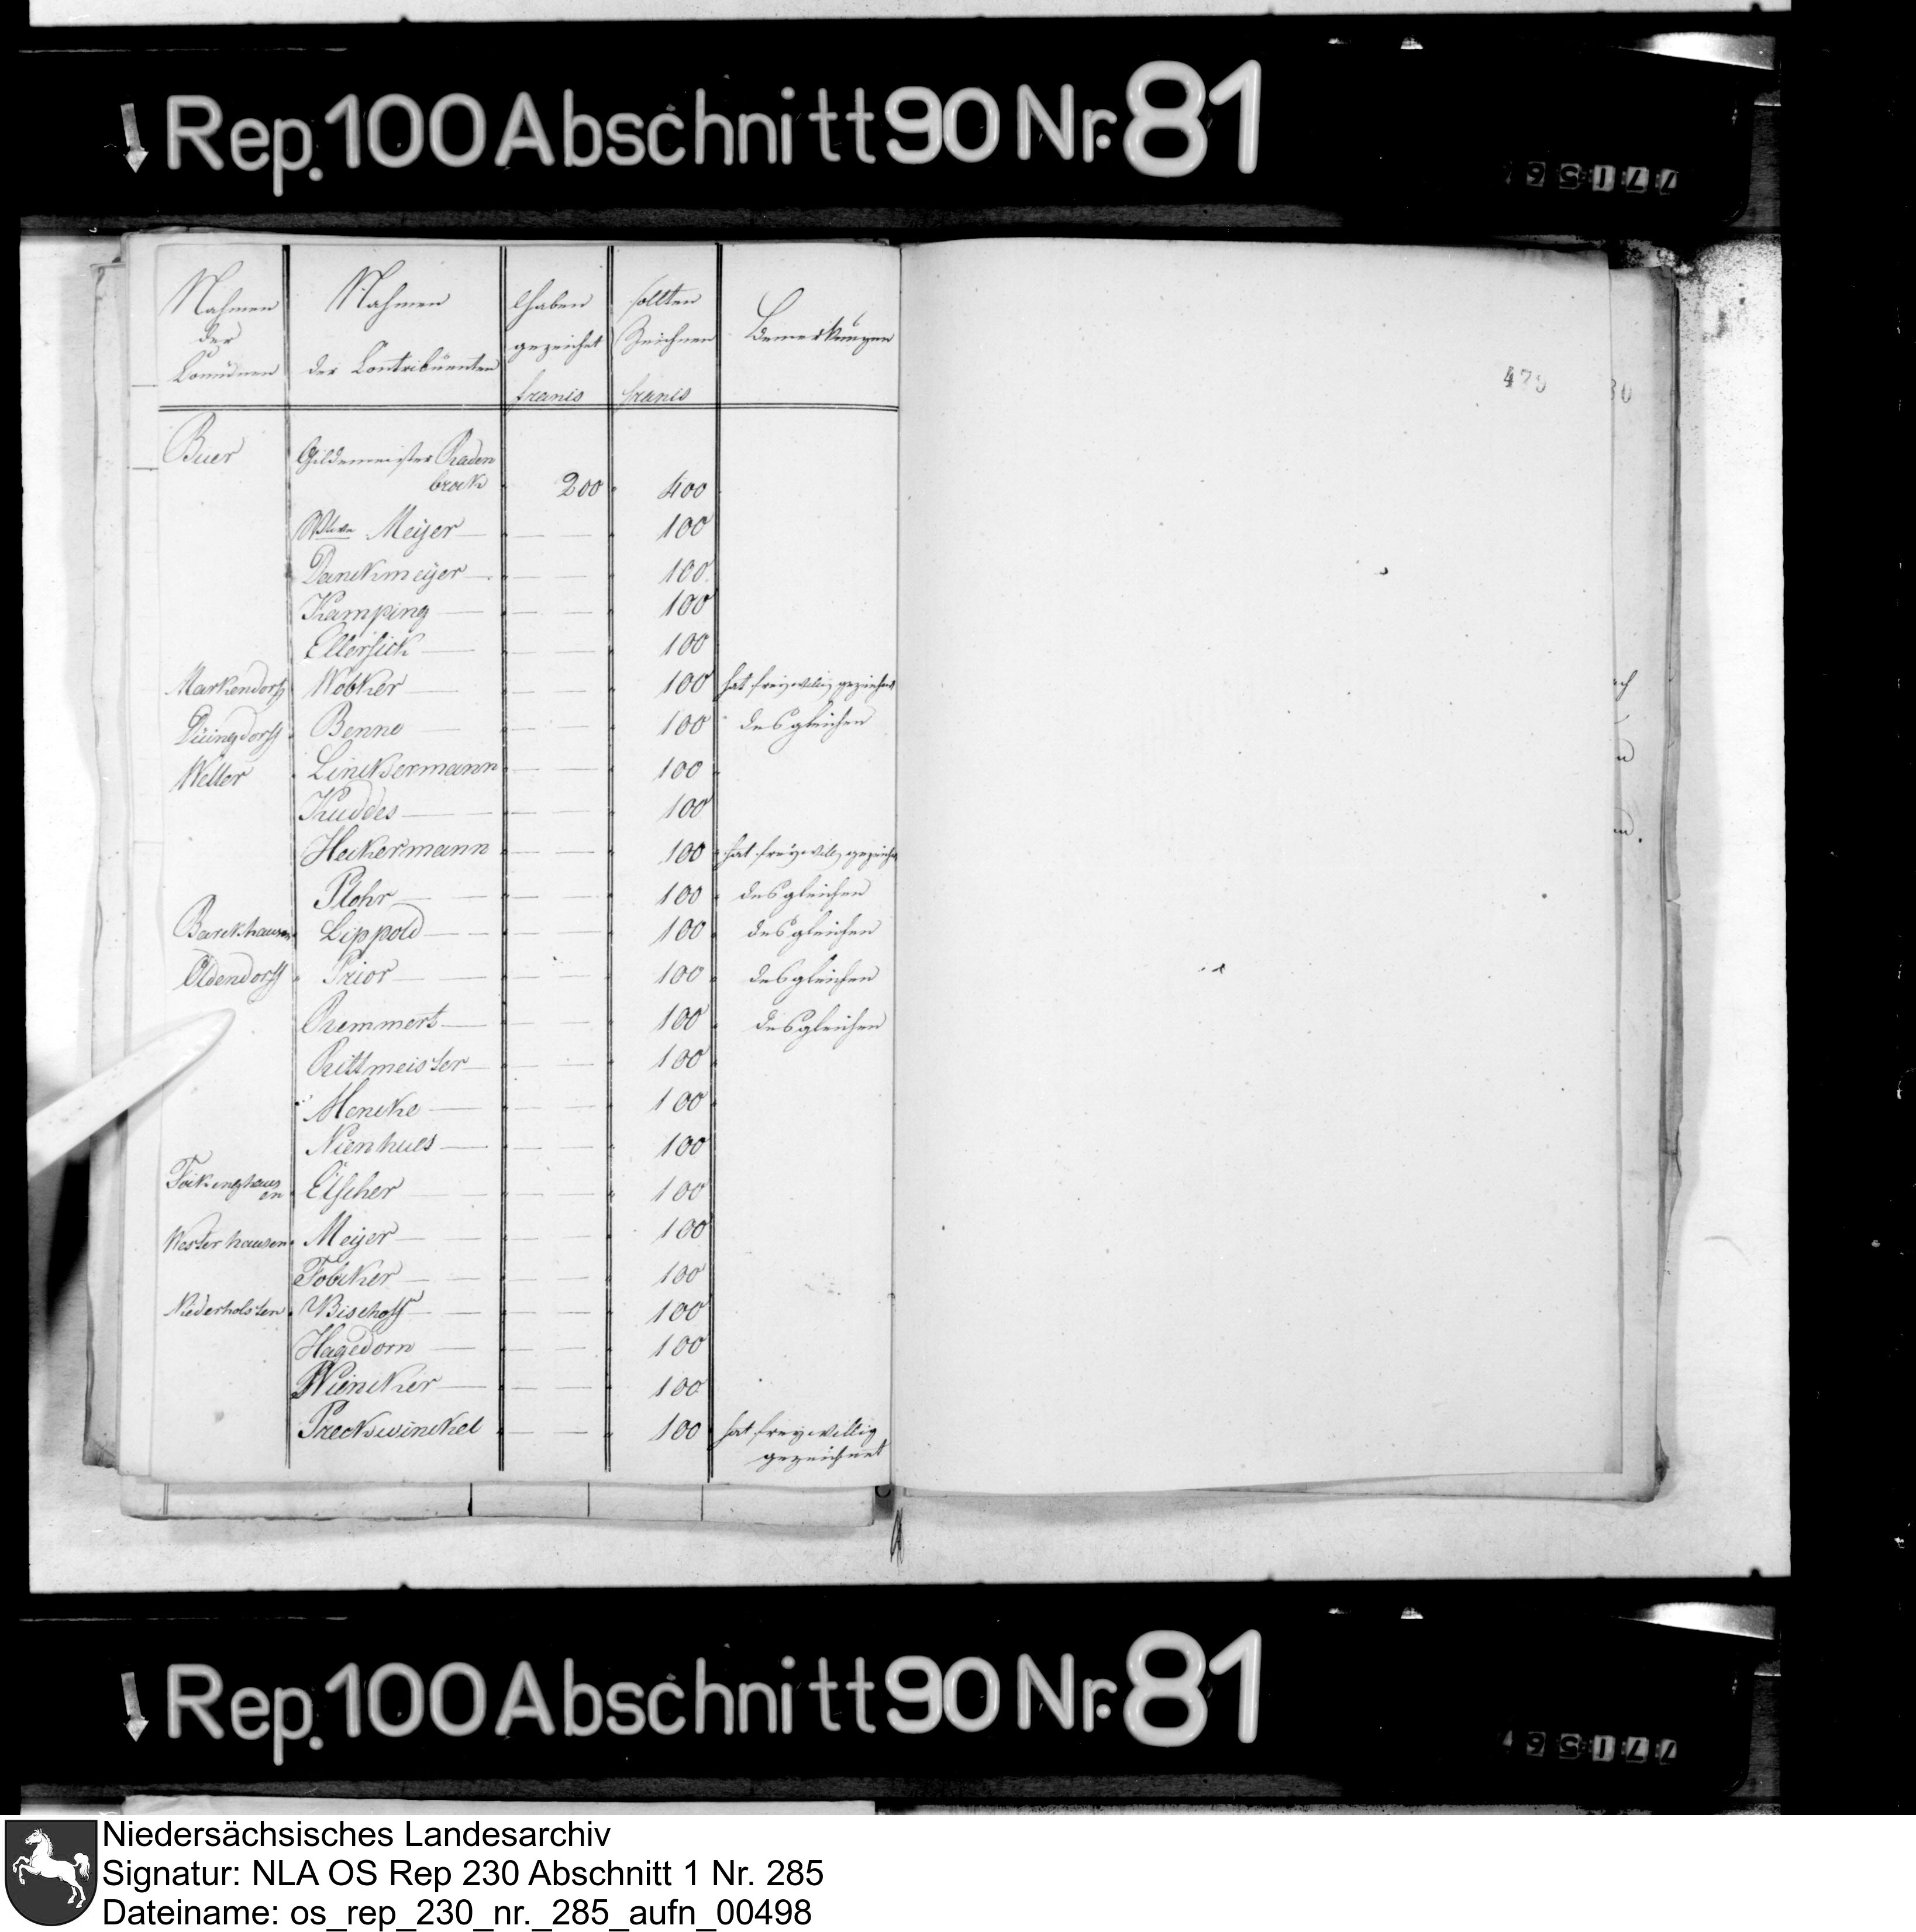 Rep. 100 Abschnitt 90 Nr. 81
Nahmen der Comunen | Nahmen der Contribuenten | haben gezeichet francs | sollten Zeichnen francs | Bemerkungen
479
Buer Gildemeister Raden
brock 200 400
Wtwe Meyer — — — 100
Danckmeyer — — — 100
Kamping — — — 100
Ellersick — — — 100
Markendorff Wobker — — — 100 hat freywillig gezeichnet
Düingdorff Benne — — — 100 desgleichen
Wetter Linckermann — — 100
Kuddes — — — 100
Heckermann — — 100 hat freywillig gezeichn
Plohr — — — 100 desgleichen
Barckhausen Lippold — — — 100 desgleichen
Oldendorff Prior — — — 100 desgleichen
Remmert — — — 100 desgleichen
Rittmeister — — — 100
Mencke — — — 100
Nienhues — — — 100
Föckinghaus
en Eischer — — — 100
Westerhausen Meyer — — — 100
Tobcker — — — 100
Niederholsten Bischoff — — — 100
Hagedorn — — — 100
Wiencker — — — 100
Preckwinckel — — 100 hat freywillig
gezeichnet
Rep. 100 Abschnitt 90 Nr. 81
Niedersächsisches Landesarchiv
Signatur: NLA OS Rep 230 Abschnitt 1 Nr. 285
Dateiname: os_rep_230_nr._285_aufn_00498